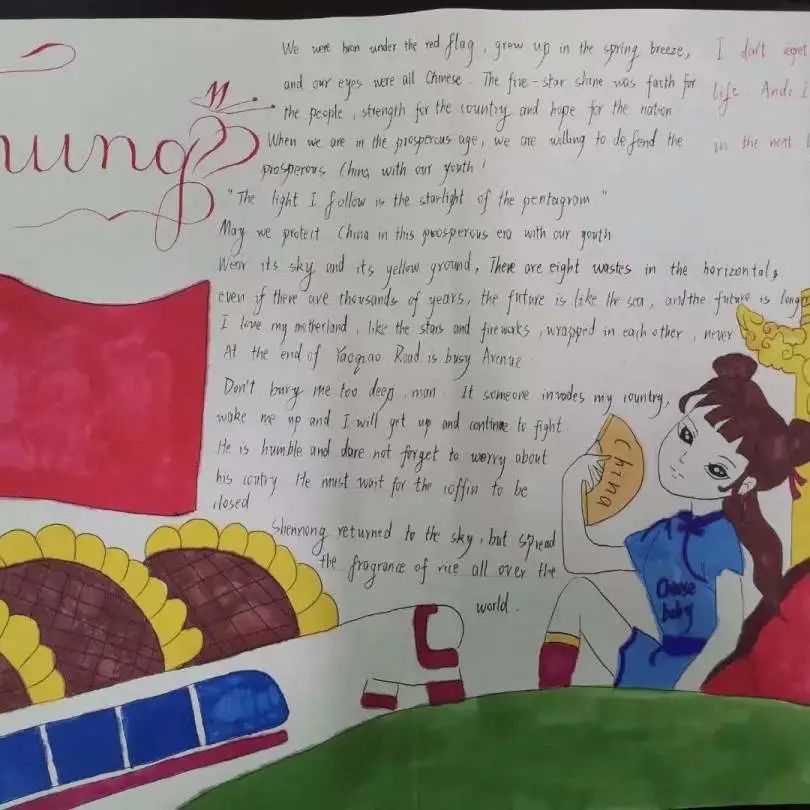 We were bron under the red flag, grow up in the spring breeze,
and our eyes were all Chinese. The five-star shine was faith for
the people, strength for the country and hope for the nation
When we are in the prosperous age, we are willing to defend the
prosperous China with our youth!
"The light I follow is the starlight of the pentagram"
May we protect China in this prosperous era with our youth
Wear its sky and its yellow ground, There are eight wastes in the horizontal,
even if there are thousands of years, the future is like the sea, and the future is longer
I love my motherland, like the stars and fireworks, wrapped in each other, never
At the end of Yaoqiao Road is busy Avenue.
Don't bury me too deep, man. It someone invades my country,
wake me up and I will get up and continue to fight.
He is humble and dare not forget to worry about
his coutry He must wait for the coffin to be
closed
Shennong returned to the sky, but spread
the fragrance of rice all over the
world.
I don't regret
life. And I
in the next
hung
China
Chinese
baby